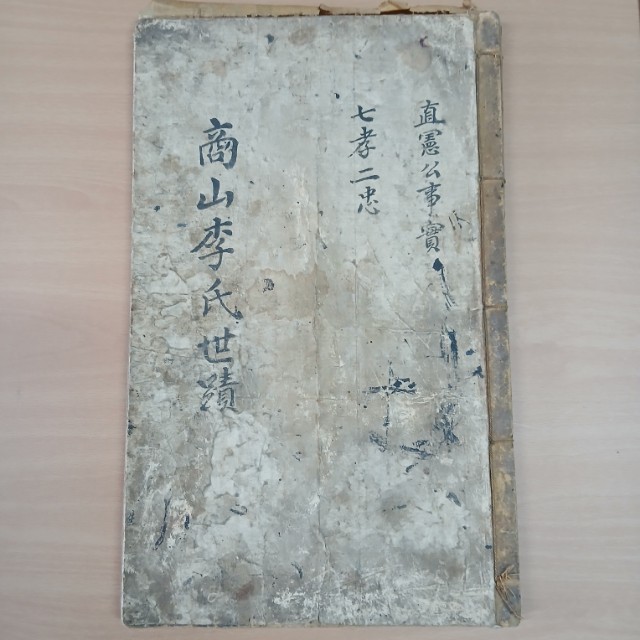 直憲公事實
七孝二忠
商山李氏世蹟